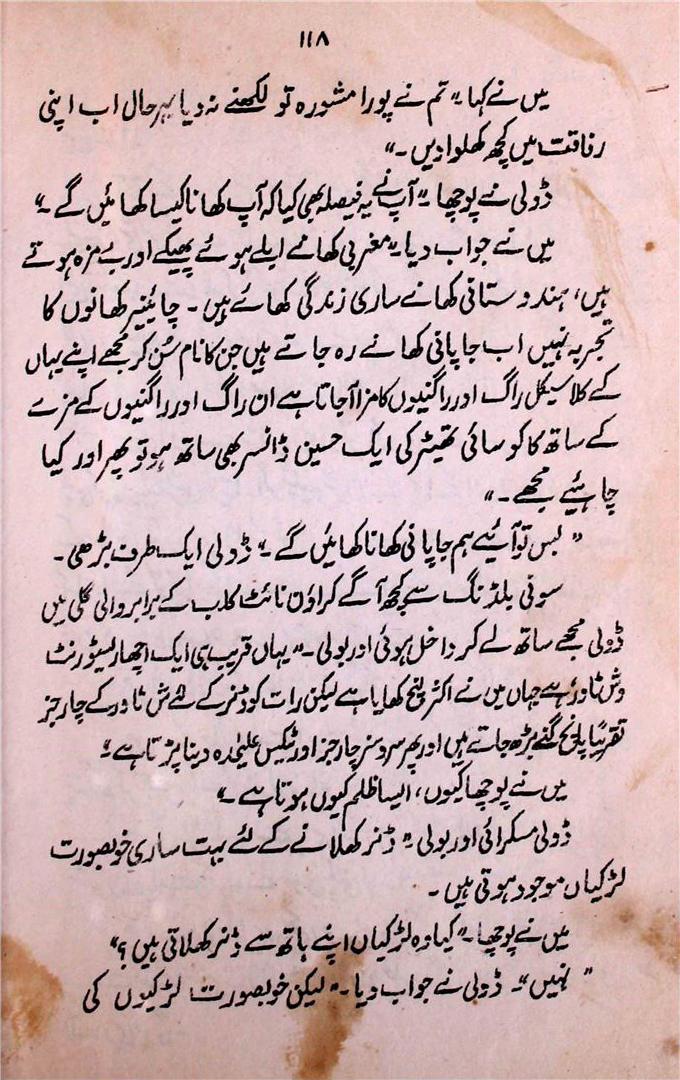 ۱۱۸
میں نے کہا۔" تم نے پورا مشورہ تو لکھنے نہ دیا بہر حال اب اپنی
رفاقت میں کچھ کھلوا دیں۔"
ڈولی نے پوچھا۔" آپ نے یہ فیصلہ بھی کیا کہ آپ کھانا کیسا کھائیں گے۔"
میں نے جواب دیا۔" مغربی کھانے ابلے ہوئے پھیکے اور بے مزہ ہوتے
ہیں، ہندوستانی کھانے ساری زندگی کھائے ہیں۔ چائینیز کھانوں کا
تجربہ نہیں اب جاپانی کھانے رہ جاتے ہیں جن کا نام سُن کر مجھے اپنے یہاں
کے کلاسیکل راگ اور راگنیوں کا مزا آجاتا ہے ان راگ اور راگنیوں کے مزے
کے ساتھ کا کوسائی تھیٹر کی ایک حسین ڈانسر بھی ساتھ ہو تو پھر اور کیا
چاہئیے مجھے۔"
" بس تو آئیے ہم جاپانی کھانا کھائیں گے۔" ڈولی ایک طرف بڑھی۔
سونی بلڈنگ سے کچھ آگے کراؤن نائٹ کلب کے برابر والی گلی میں
ڈولی مجھے ساتھ لے کر داخل ہوئی اور بولی۔" یہاں قریب ہی ایک اچھا ریسٹورنٹ
وش ٹاور ہے جہاں میں نے اکثر لنچ کھایا ہے لیکن رات کو ڈنر کے لئے ش ٹاور کے چارجز
تقریباً پانچ گنے بڑھ جاتے ہیں اور پھر سروسز چارجز اور ٹیکس علیٰحدہ دینا پڑتا ہے"
میں نے پوچھا کیوں، ایسا ظلم کیوں ہوتا ہے۔"
ڈولی مسکرائی اور بولی " ڈنر کھلانے کے لئے بہت ساری خوبصورت
لڑکیاں موجود ہوتی ہیں۔
میں نے پوچھا۔" کیا وہ لڑکیاں اپنے ہاتھ سے ڈنر کھلاتی ہیں؟"
" نہیں"۔ ڈولی نے جواب دیا۔" لیکن خوبصورت لڑکیوں کی